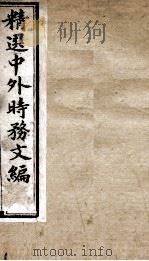 精選中外時務文編
www.mtoou.info